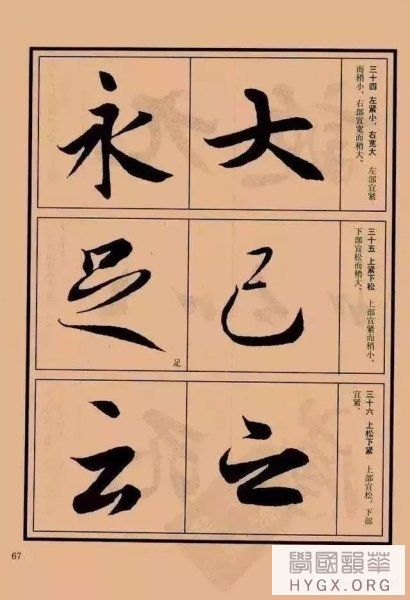 三十四 左紧小，右宽大 左部宜紧
而稍小，右部宜宽而稍大。
大
永
三十五 上紧下松 上部宜紧而稍小，
下部宜松而稍大。
已
足
足
三十六 上松下紧 上部宜松，下部
宜紧。
之
云
67
學國韻華
HYGX.ORG